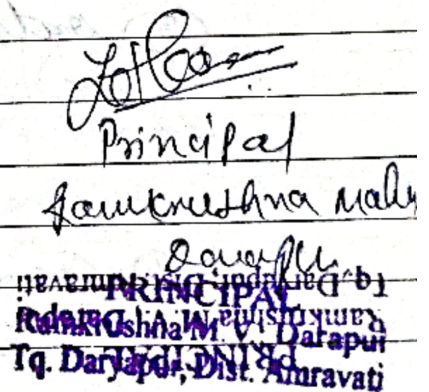 Principal
Ramkrushna Mahu
Darapur
PRINCIPAL
Ramkrushna M. V. Darapur
Tq. Daryapur, Dist. Amravati